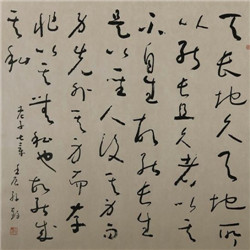 天長地久天地所
以能長且久者以其
不自生故能長生
是以聖人後其身而
身先外其身而身存
非以其無私也故能成
其私
老子七章